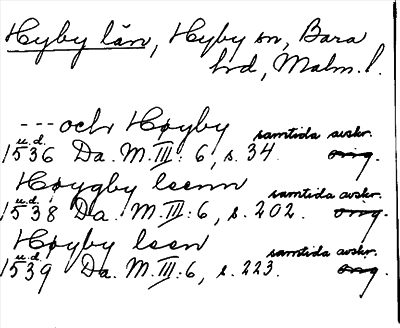 Hyby län, Hyby sn, Bara
hd, Malm. l.
---och Høyby
u.d. samtida avskr.
1536 Da. M. III: 6, s. 34. orig.
Høygby leenn
u.d. samtida avskr.
1538 Da. M. III: 6, s. 202. orig.
Høyby leen
u.d. samtida avskr.
1539 Da. M. III: 6, s. 223. orig.